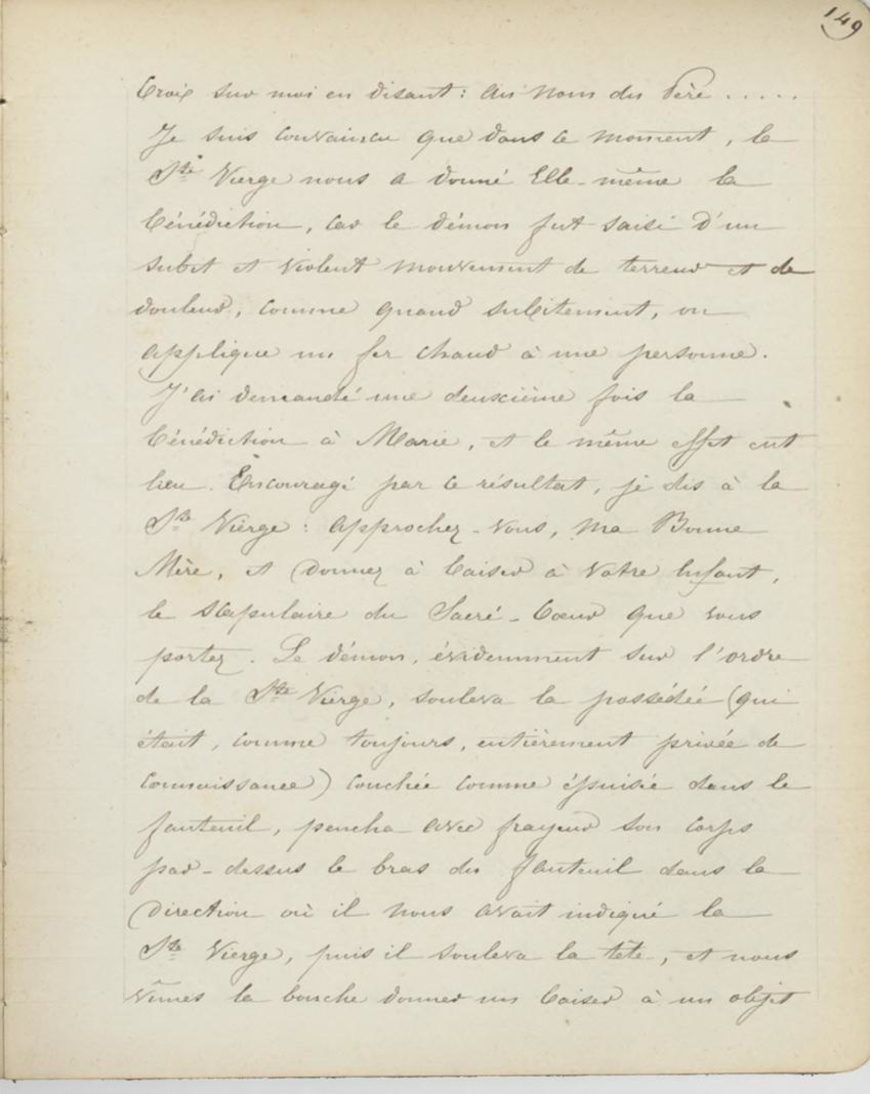 149
Croix sur moi en disant : Au nom du Père .....
Je suis convaincu que dans ce moment, la
Ste Vierge nous a donné Elle-même la
bénédiction, car le démon fut saisi d'un
subit et violent mouvement de terreur et de
douleur, comme quand subitement, on
applique un fer chaud à une personne.
J'ai demandé une deuxième fois la
bénédiction à Marie, et le même effet eut
lieu. Encouragé par ce résultat, je dis à la
Ste Vierge : approchez-vous, ma Bonne
Mère, et donnez à baiser à votre Enfant,
le scapulaire du Sacré-Cœur que vous
portez. Le démon, évidemment sur l'ordre
de la Ste Vierge, souleva la possédée (qui
était, comme toujours, entièrement privée de
connaissance) couchée comme épuisée dans le
fauteuil, pencha avec frayeur son corps
par-dessus le bras du fauteuil dans la
direction où il nous avait indiqué la
Ste Vierge, puis il souleva la tête, et nous
vîmes la bouche donner un baiser à un objet